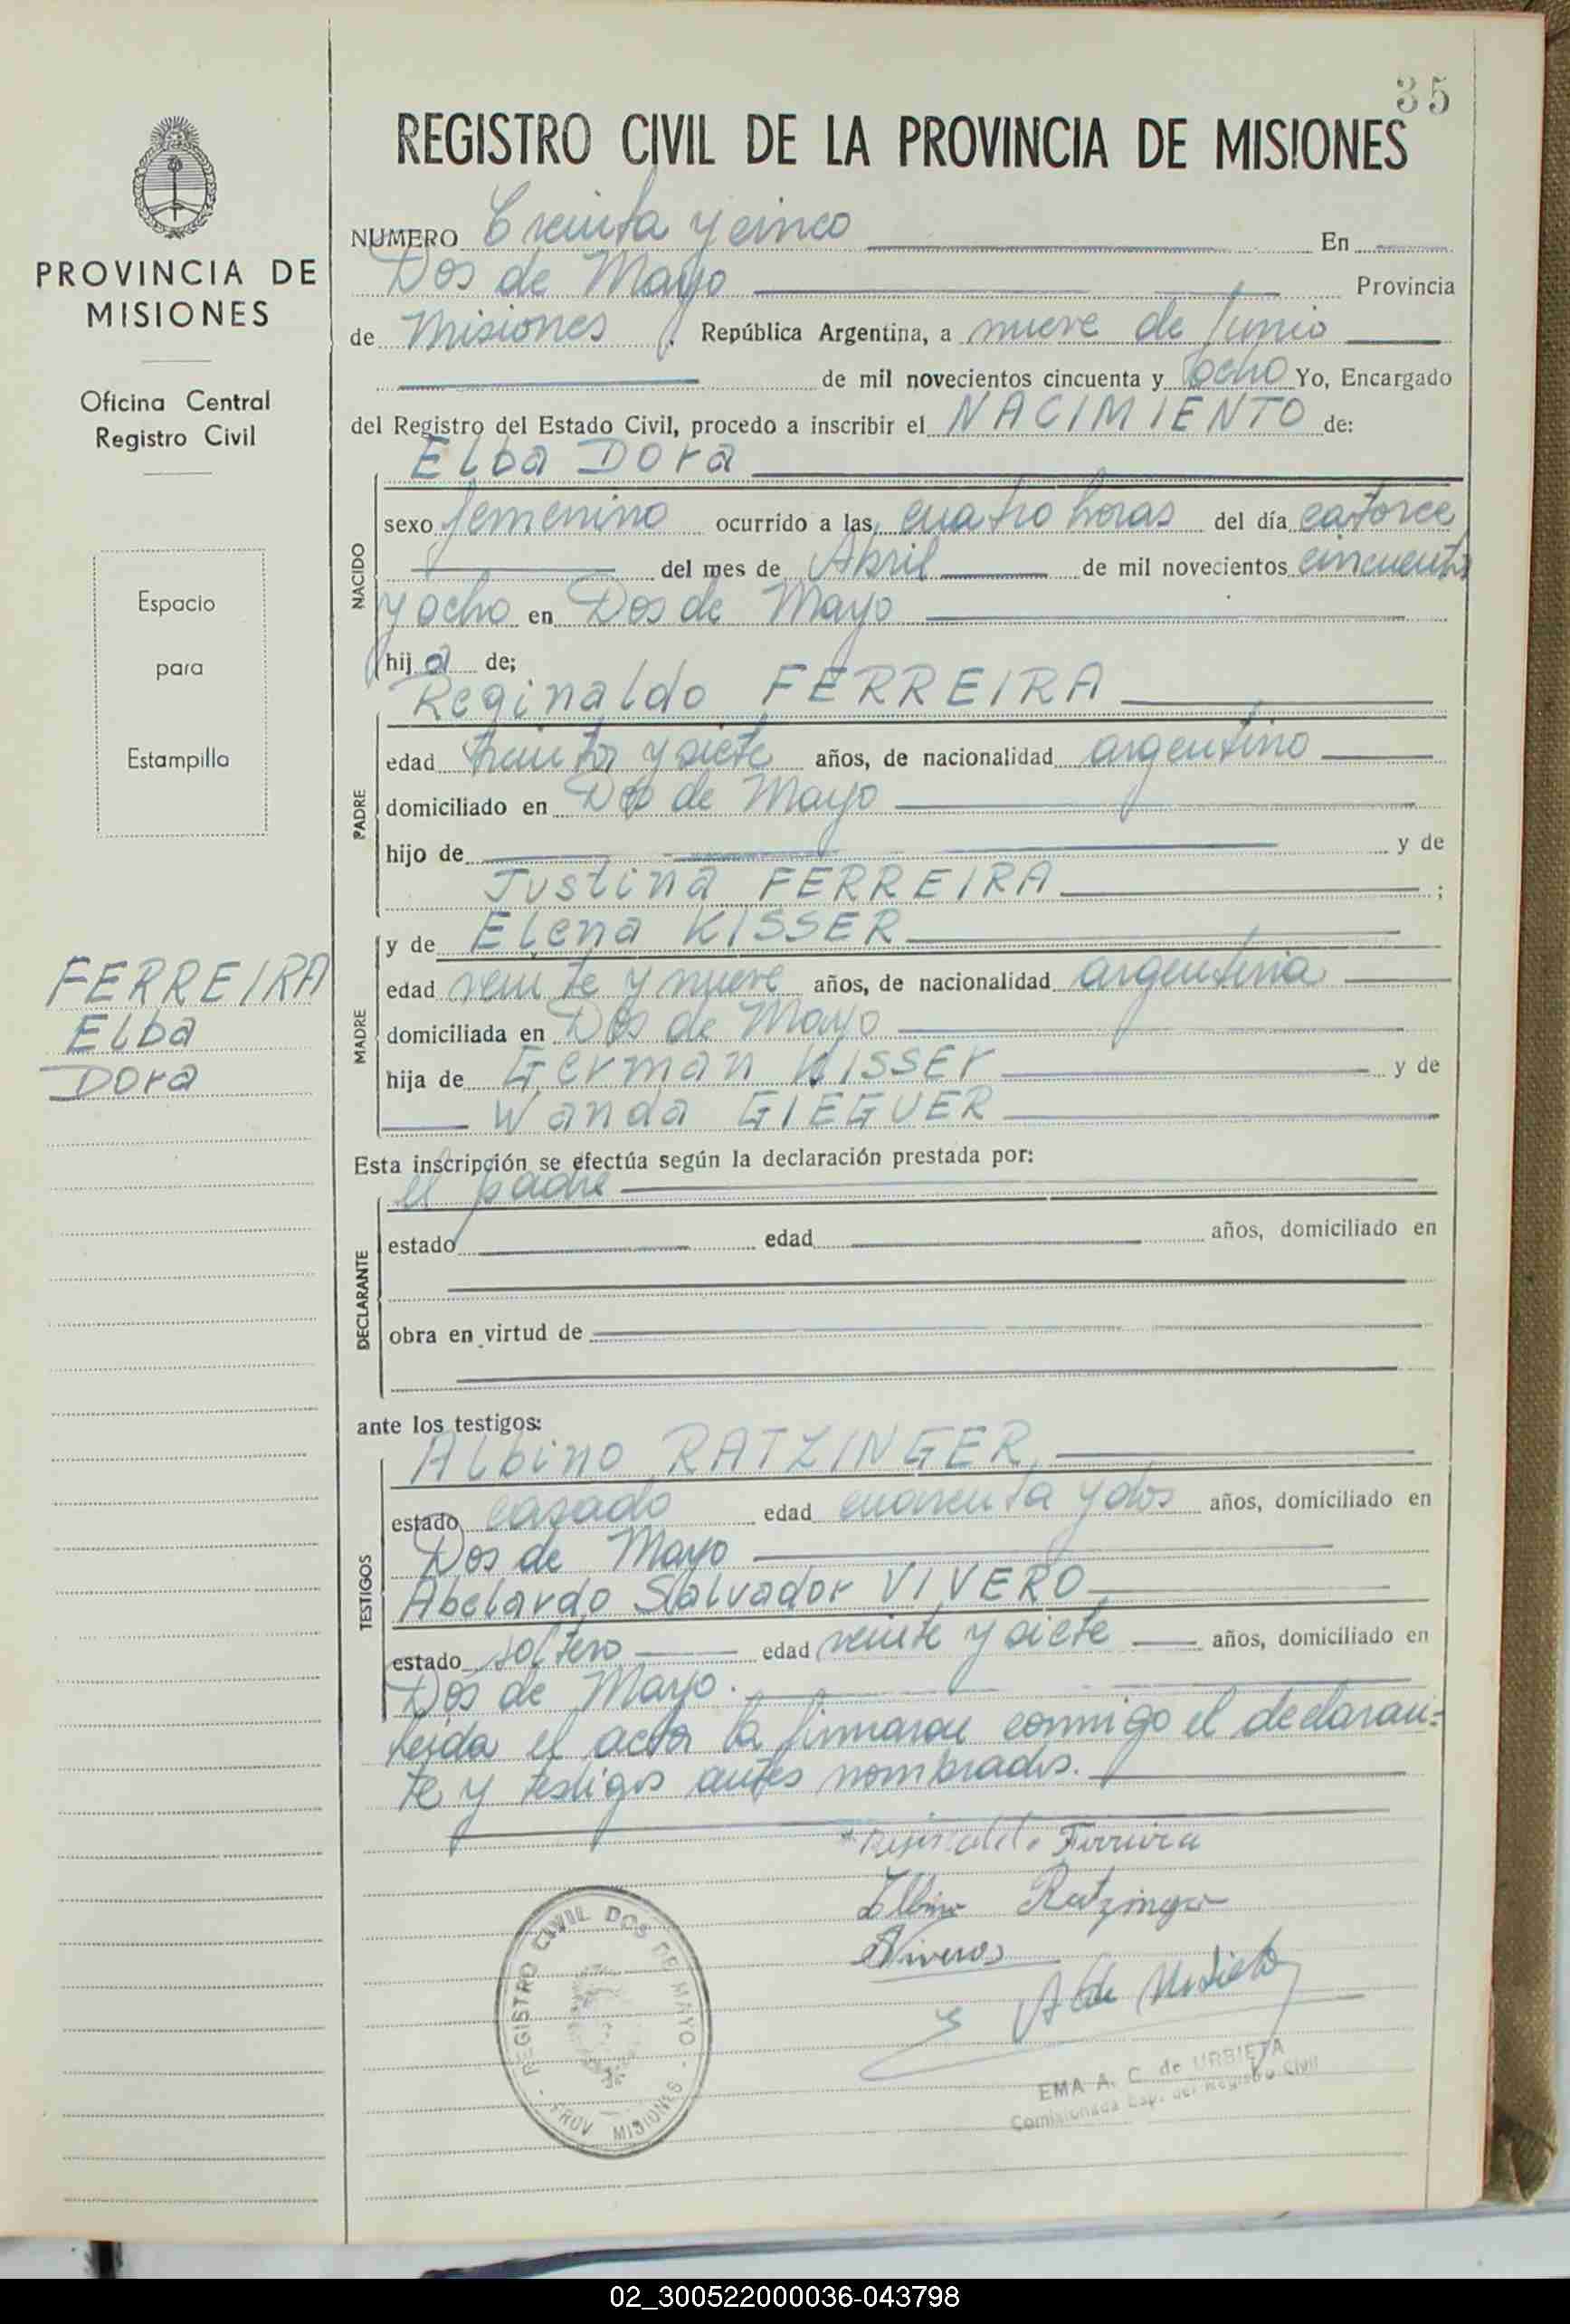 35
REGISTRO CIVIL DE LA PROVINCIA DE MISIONES
PROVINCIA DE
MISIONES
Oficina Central
Registro Civil
Espacio
para
Estampilla
FERREIRA
Elba
Dora
NUMERO Treinta y cinco En
Dos de Mayo Provincia
de Misiones, República Argentina, a nueve de Junio
de mil novecientos cincuenta y ocho Yo, Encargado
del Registro del Estado Civil, procedo a inscribir el NACIMIENTO de:
Elba Dora
NACIDO
sexo femenino ocurrido a las cuatro horas del día catorce
del mes de Abril de mil novecientos cincuenta
y ocho en Dos de Mayo
hija de;
Reginaldo FERREIRA
PADRE
edad treinta y siete años, de nacionalidad argentino
domiciliado en Dos de Mayo
hijo de y de
Justina FERREIRA ;
MADRE
y de Elena KISSER
edad veinte y nueve años, de nacionalidad argentina
domiciliada en Dos de Mayo
hija de German KISSER y de
Wanda GIEGUER
Esta inscripción se efectúa según la declaración prestada por:
el padre
DECLARANTE
estado edad años, domiciliado en
obra en virtud de
ante los testigos:
Albino RATZINGER
TESTIGOS
estado casado edad cuarenta y dos años, domiciliado en
Dos de Mayo
Abelardo Salvador VIVERO
estado soltero edad veinte y siete años, domiciliado en
Dos de Mayo.
Leida el acta la firmaron conmigo el declaran=
te y testigos antes nombrados.
Ferreira
Albino Ratzinger
Viveros
REGISTRO CIVIL DOS DE MAYO - PROV MISIONES
EMA A. C. de URBIETA
Comisionada Esp. del Registro Civil
02_300522000036-043798